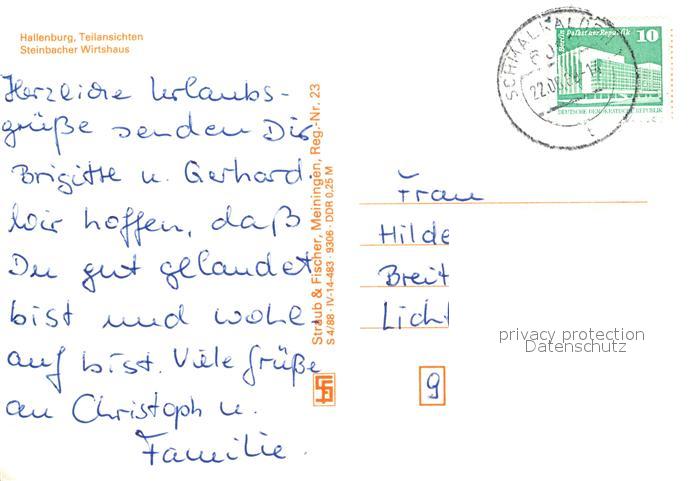 Hallenburg, Teilansichten
Steinbacher Wirtshaus
Herzliche Urlaubs-
grüße senden Dir
Brigitte u. Gerhard.
Wir hoffen, daß
Du gut gelandet
bist und wohl-
auf bist. Viele Grüße
an Christoph u.
Familie.
Straub & Fischer, Meiningen, Reg.-Nr. 23
S 4/88 · IV-14-483 · 9306 · DDR 0,25 M
SCHMALKALDEN
22.08.88
Berlin Palast der Republik 10
DEUTSCHE DEMOKRATISCHE REPUBLIK
Frau
Hilde
Breit
Licht
9
privacy protection
Datenschutz